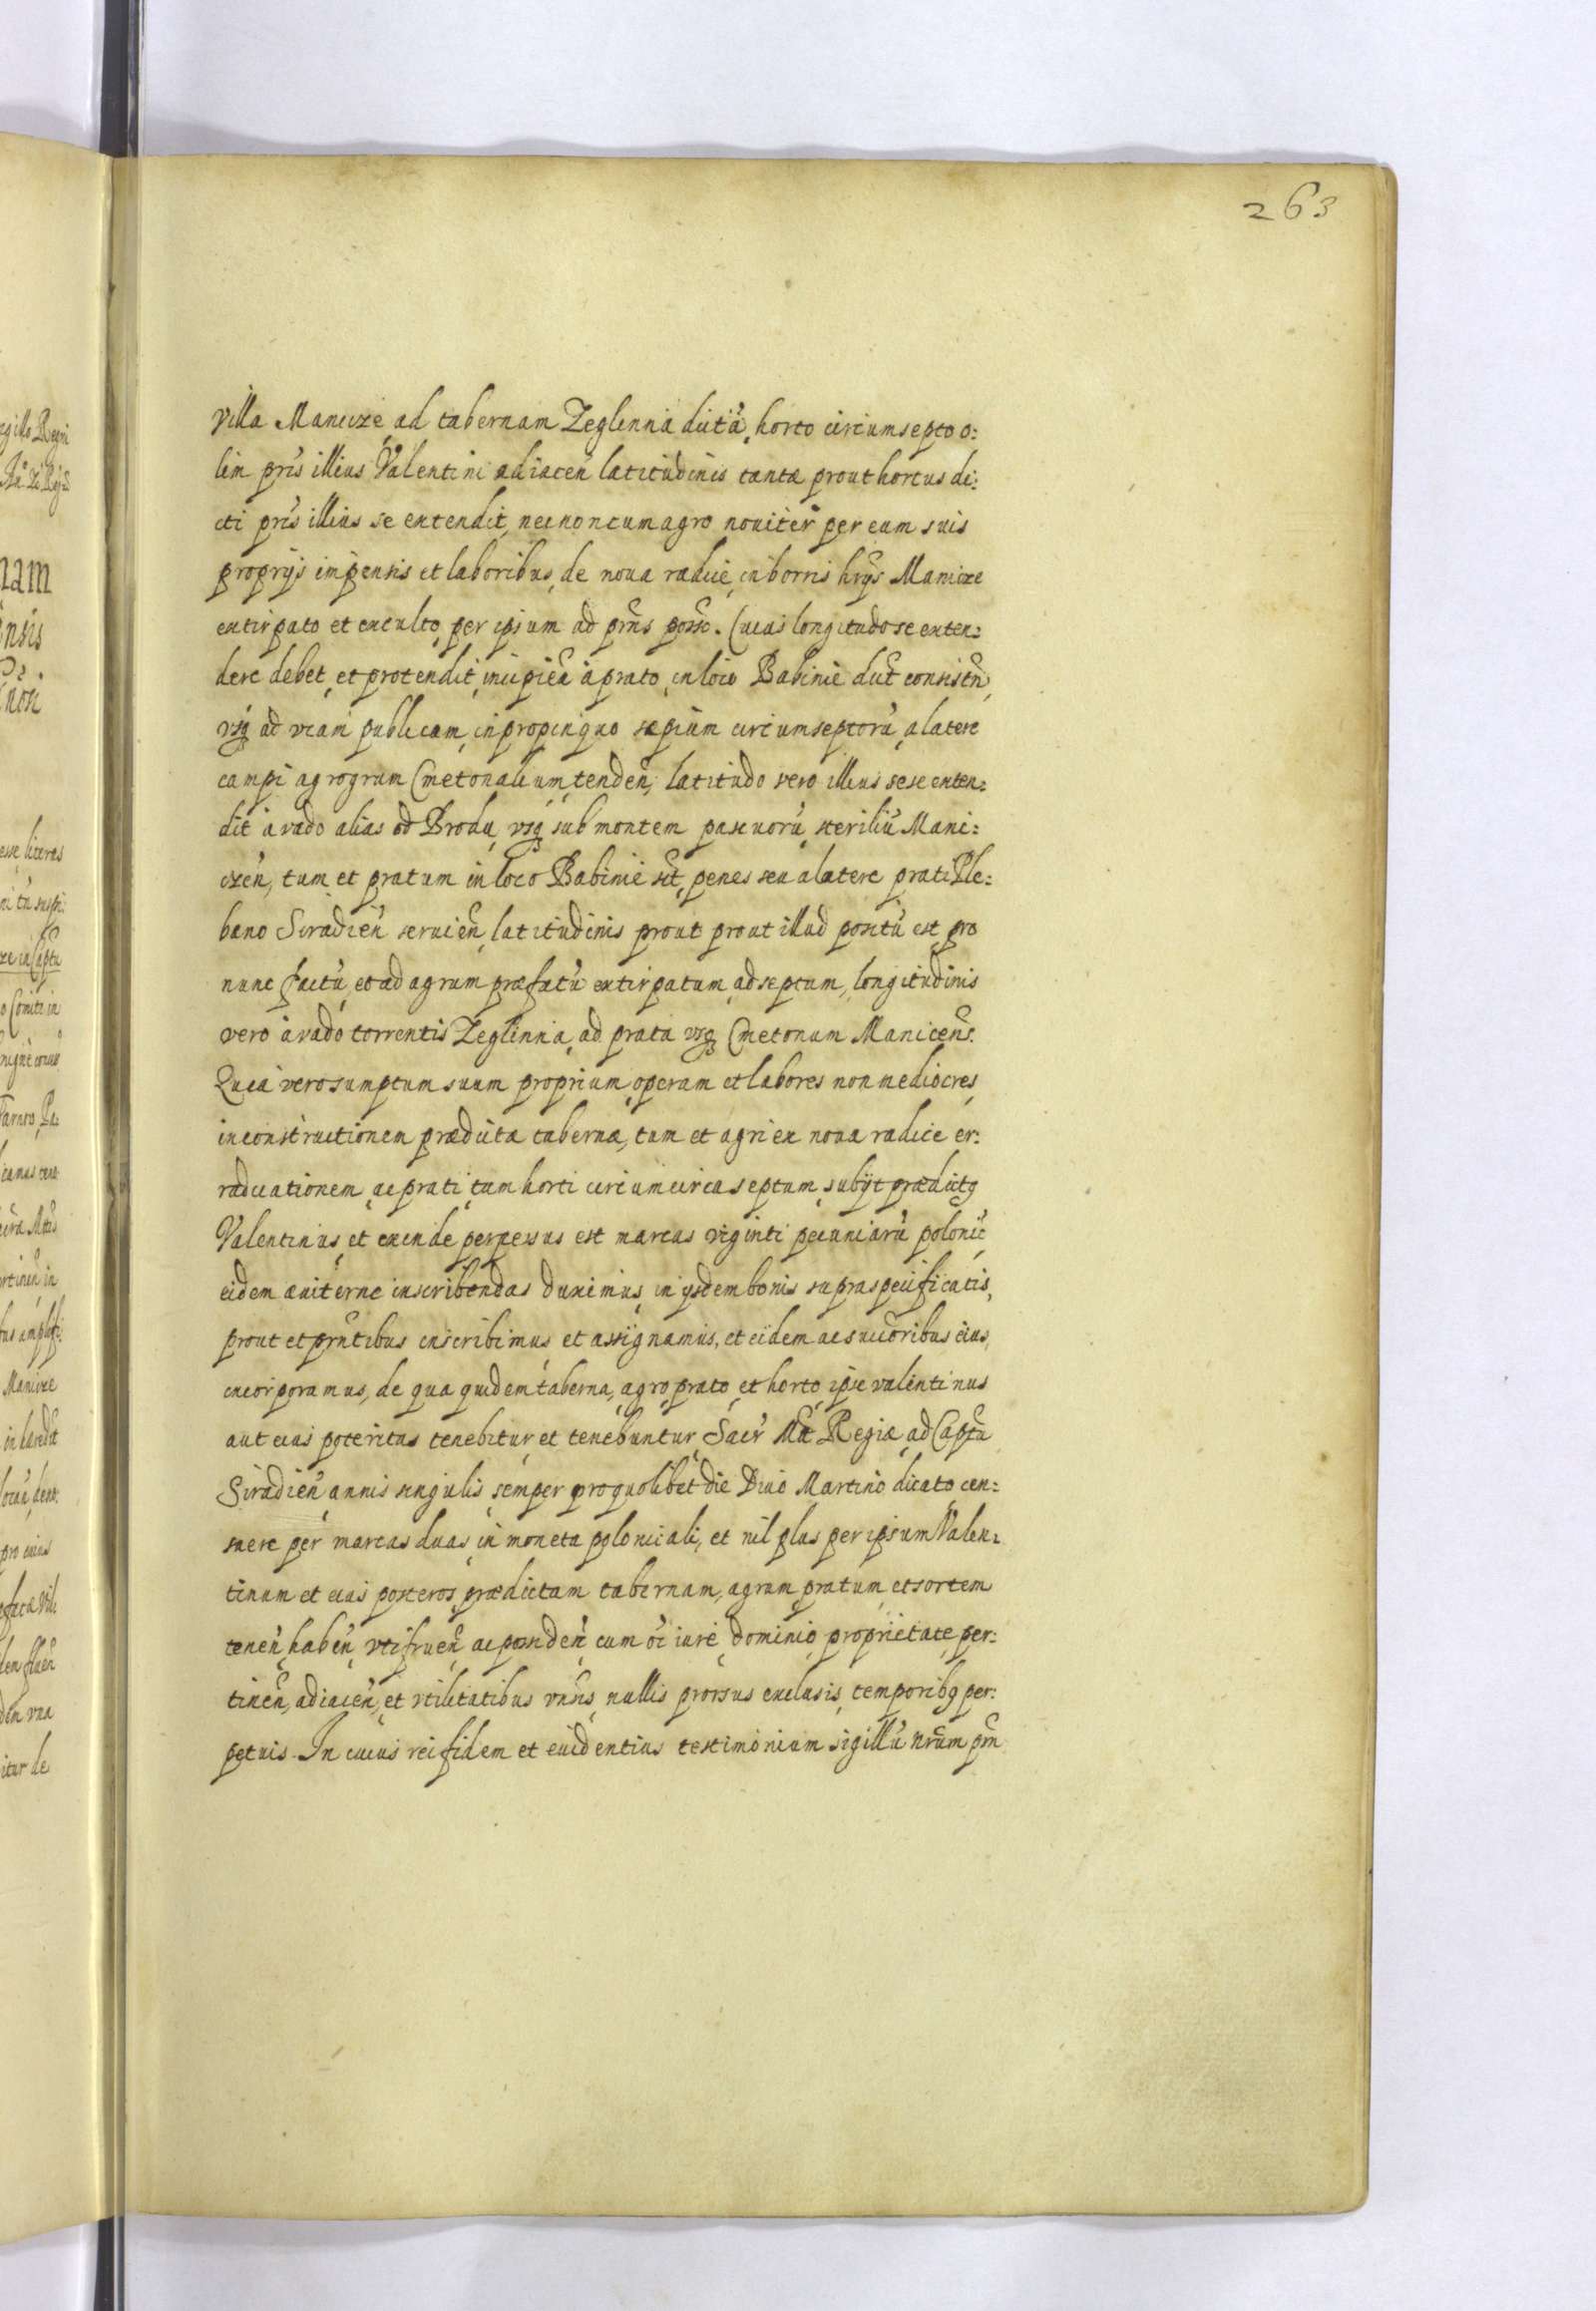 263
villa Manicze, ad tabernam Zeglinnia dictā, horto circumsepto o:
lim pr̄is illius Valentini adiaceñ latitudinis tantæ prout hortus di:
cti pr̄is illius se extendit, nec non cum agro noviter per eum suis
proprijs impensis et laboribus, de noua radice, in borris hr̄ijs Manicze
extirpato et exculto, per ipsum ad pr̄ns posso. Cuius longitudo se exten:
dere debet, et protendit, incipieñ à prato, in loco Babinie dict consisteñ,
vsq ad viam publicam, in propinquo sæpium circumseptorū, a latere
campi agrogrum Cmetonalium, tendeñ, latitudo vero illius sese exten:
dit à vado alias od Brodu, vsq sub montem pascuorū, steriliū Mani:
czeñ, tum et pratum in loco Babinie sit, penes seu a latere prati Ple:
bano Siradieñ seruieñ, latitudinis prout prout illud positū est, pro
nunc factū, et ad agrum præfatū extirpatum, adseptum, longitudinis
vero à vado torrentis Zeglinnia, ad prata vsq Cmetonum Maniceñs.
Quia vero sumptum suum proprium, operam et labores non mediocres,
in constructionem prædictæ tabernæ, tum et agri ex noua radice er:
radicationem, ac prati, tum horti circumcirca septum, subijt prædictq
Valentinus, et exinde perpessus est marcas viginti pecuniarū polonic̄,
eidem æuiterne inscribendas duximus, in ijsdem bonis supraspecificatis,
prout et pr̄ntibus inscribimus et assignamus, et eidem ac succoribus eius,
incorporamus, de qua quidem taberna, agro, prato, et horto, ipse valentinus
aut eius poteritas tenebitur, et tenebuntur, Sacr̄ Mtt Regiæ, ad Captū
Siradieñ, annis singulis, semper pro quolibet die Diuo Martino dicato, cen:
suere per marcas duas, in moneta polonicali, et nil plus per ipsum Valen:
tinum et eius posteros, prædictam tabernam, agrum, pratum, et sortem
teneñ, habeñ, vtifrueñ, ac possideñ, cum oī iure, dominio, proprietate, per:
tineñ, adiaceñ, et vtilitatibus vnīs, nullis prorsus exclusis, temporibq per:
petuis. In cuius rei fidem et euidentius testimonium sigillū nr̄um pr̄n